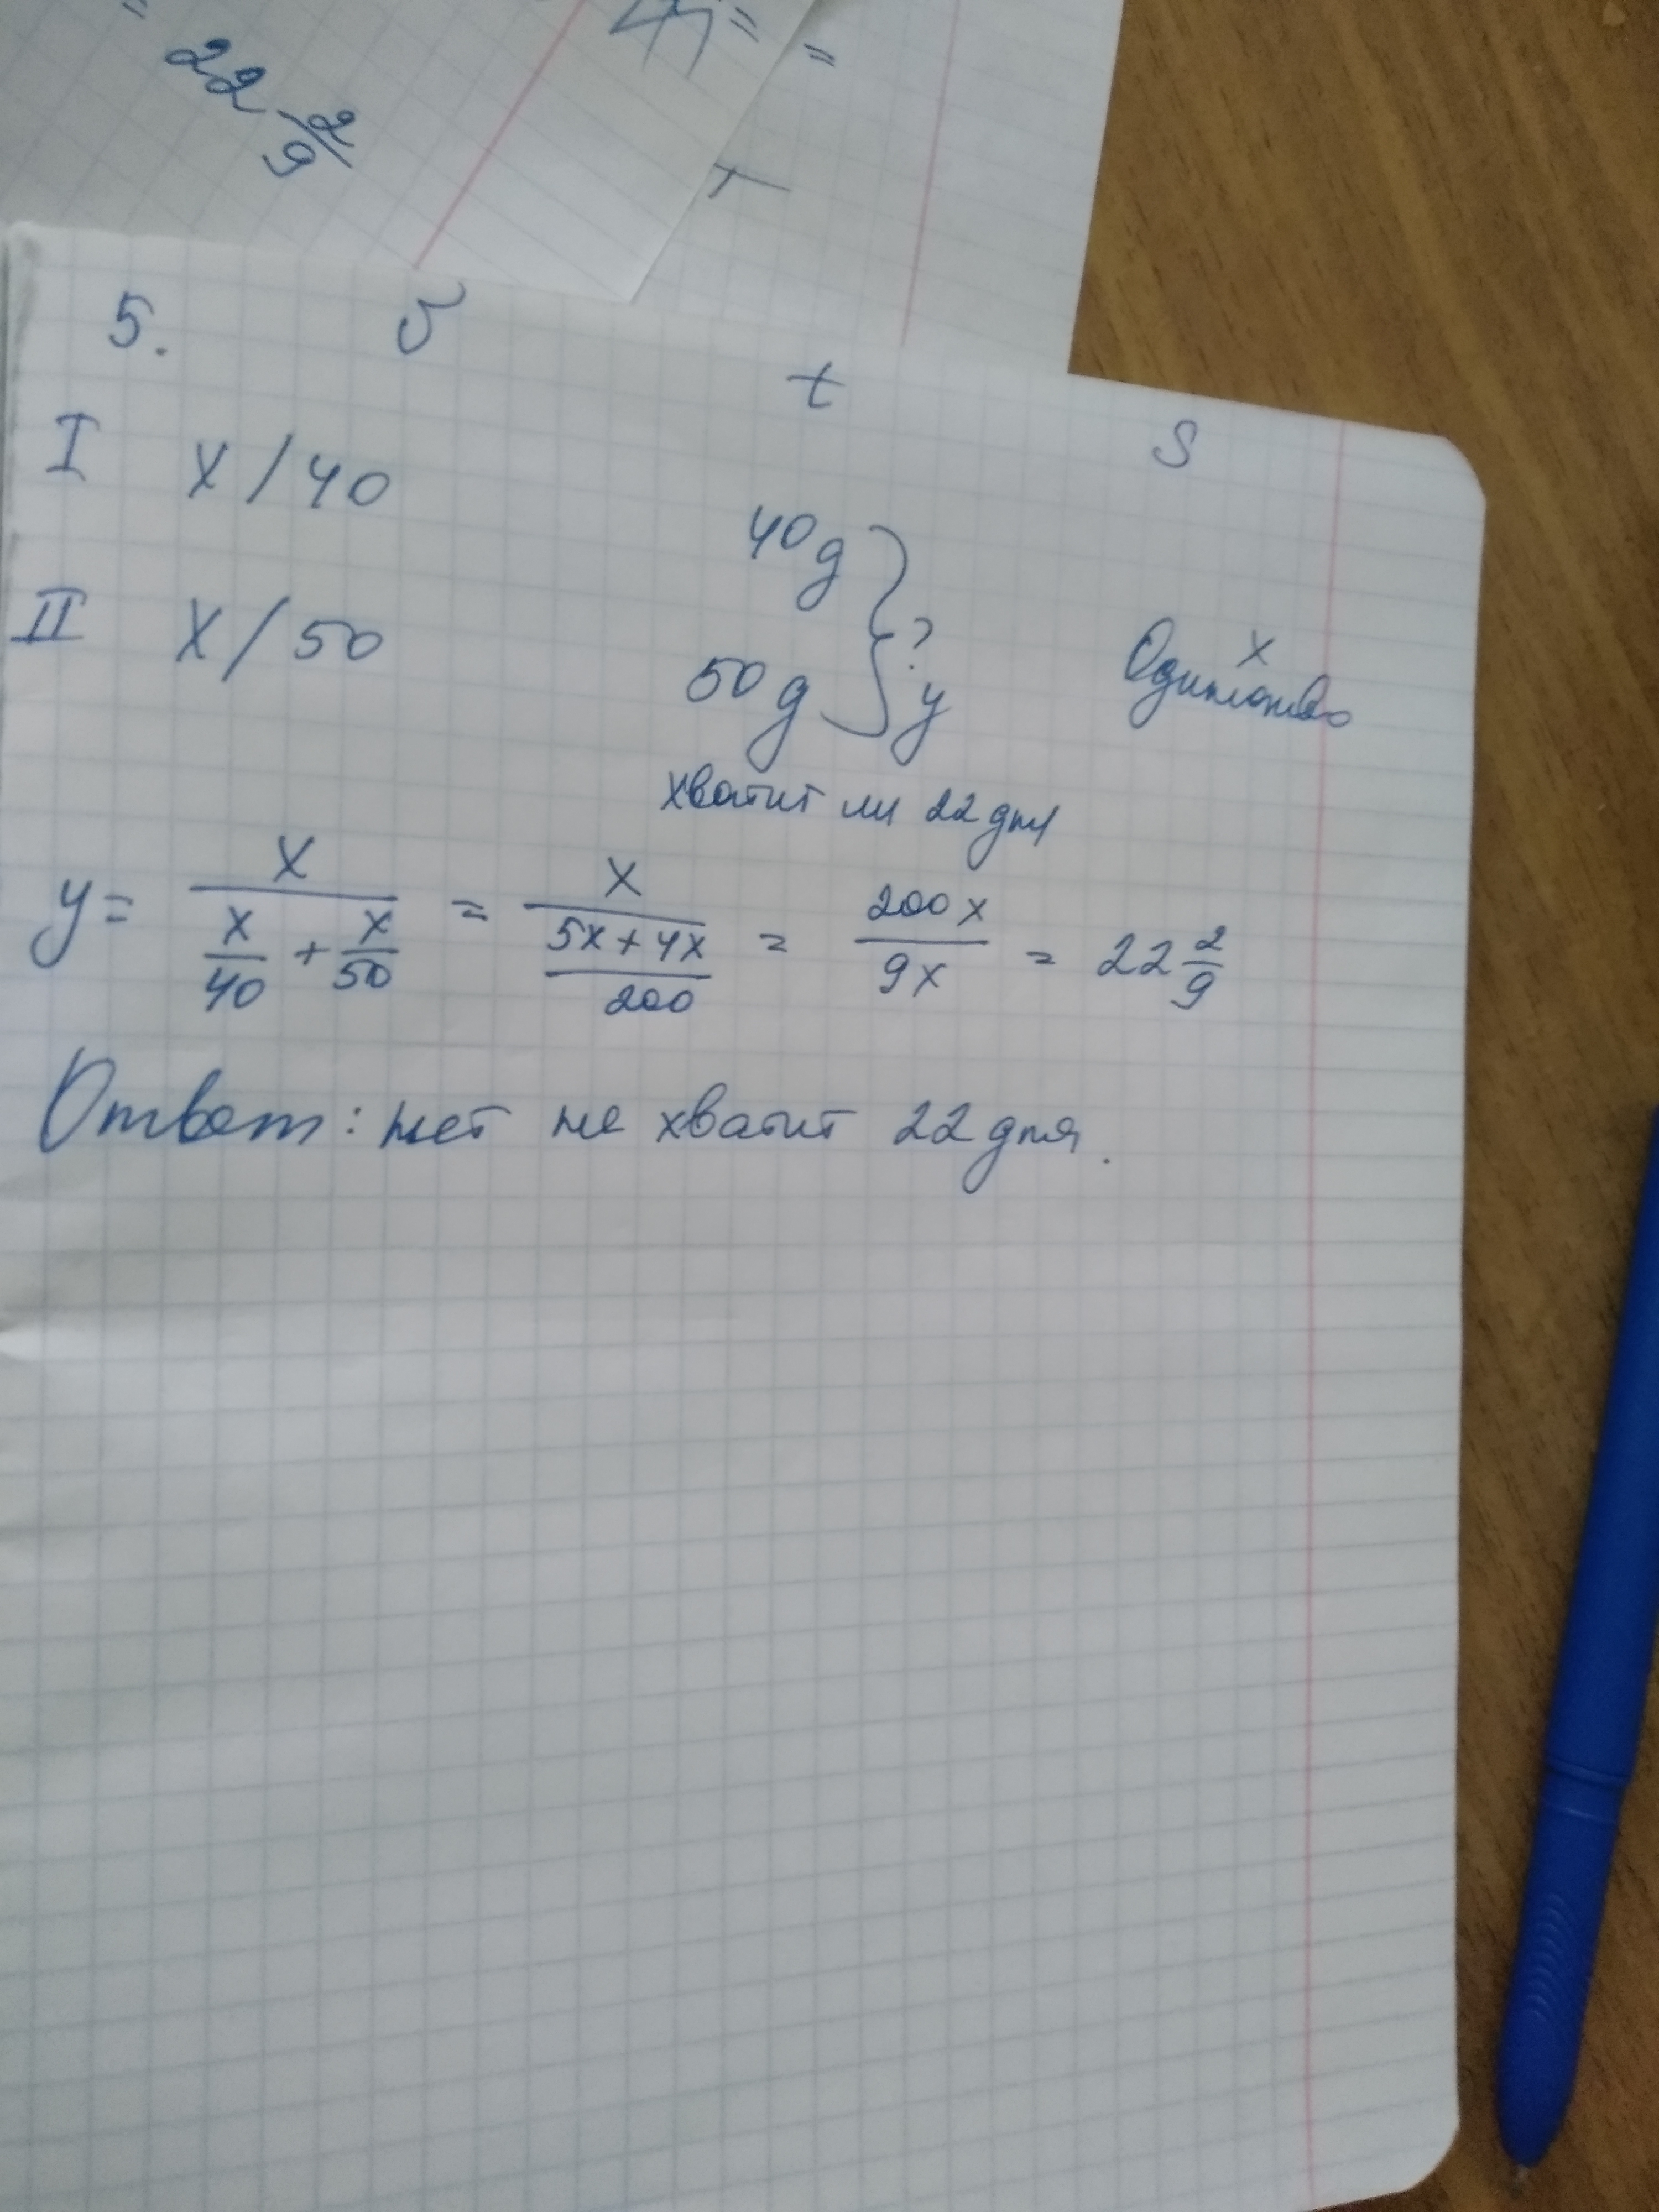 = 22 2/9
=
5. v t s
I x/40 40д
II x/50 50д ? y x Одинаково
хватит ли 22 дня
y = x/(x/40 + x/50) = x/((5x+4x)/200) = 200x/9x = 22 2/9
Ответ: нет не хватит 22 дня.